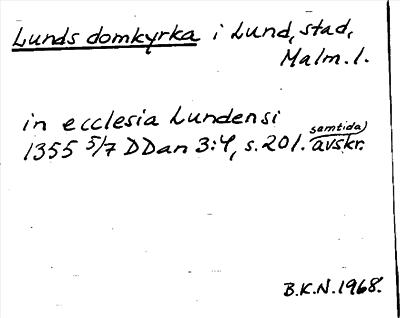 Lunds domkyrka i Lund, stad,
Malm. l.
in ecclesia Lundensi
1355 5/7 DDan 3:4, s. 201. samtida) avskr.
B.K.N. 1968.